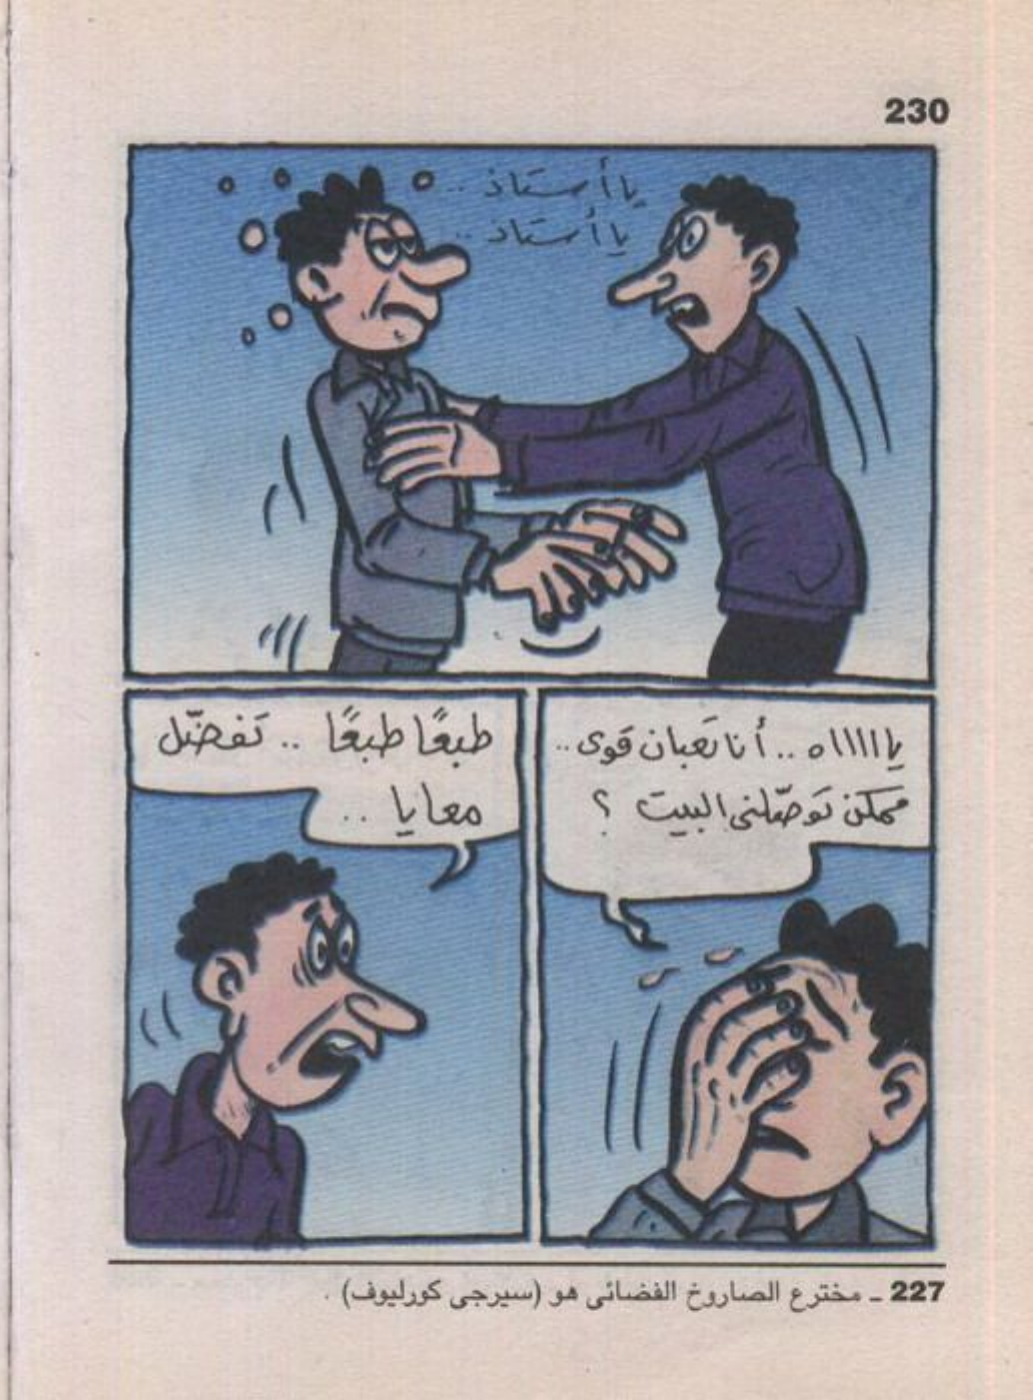 230
يا أستاذ ..
يا أستاذ ..
يااااااه .. أنا تعبان قوى ..
ممكن توَصّلنى البيت ؟
طبعًا طبعًا .. تَفضّل
معايا ..
227 ـ مخترع الصاروخ الفضائى هو (سيرجى كورليوف) .